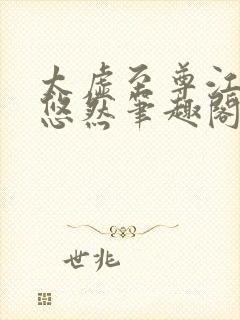 太虚至尊江
悠然笔趣阁
世兆